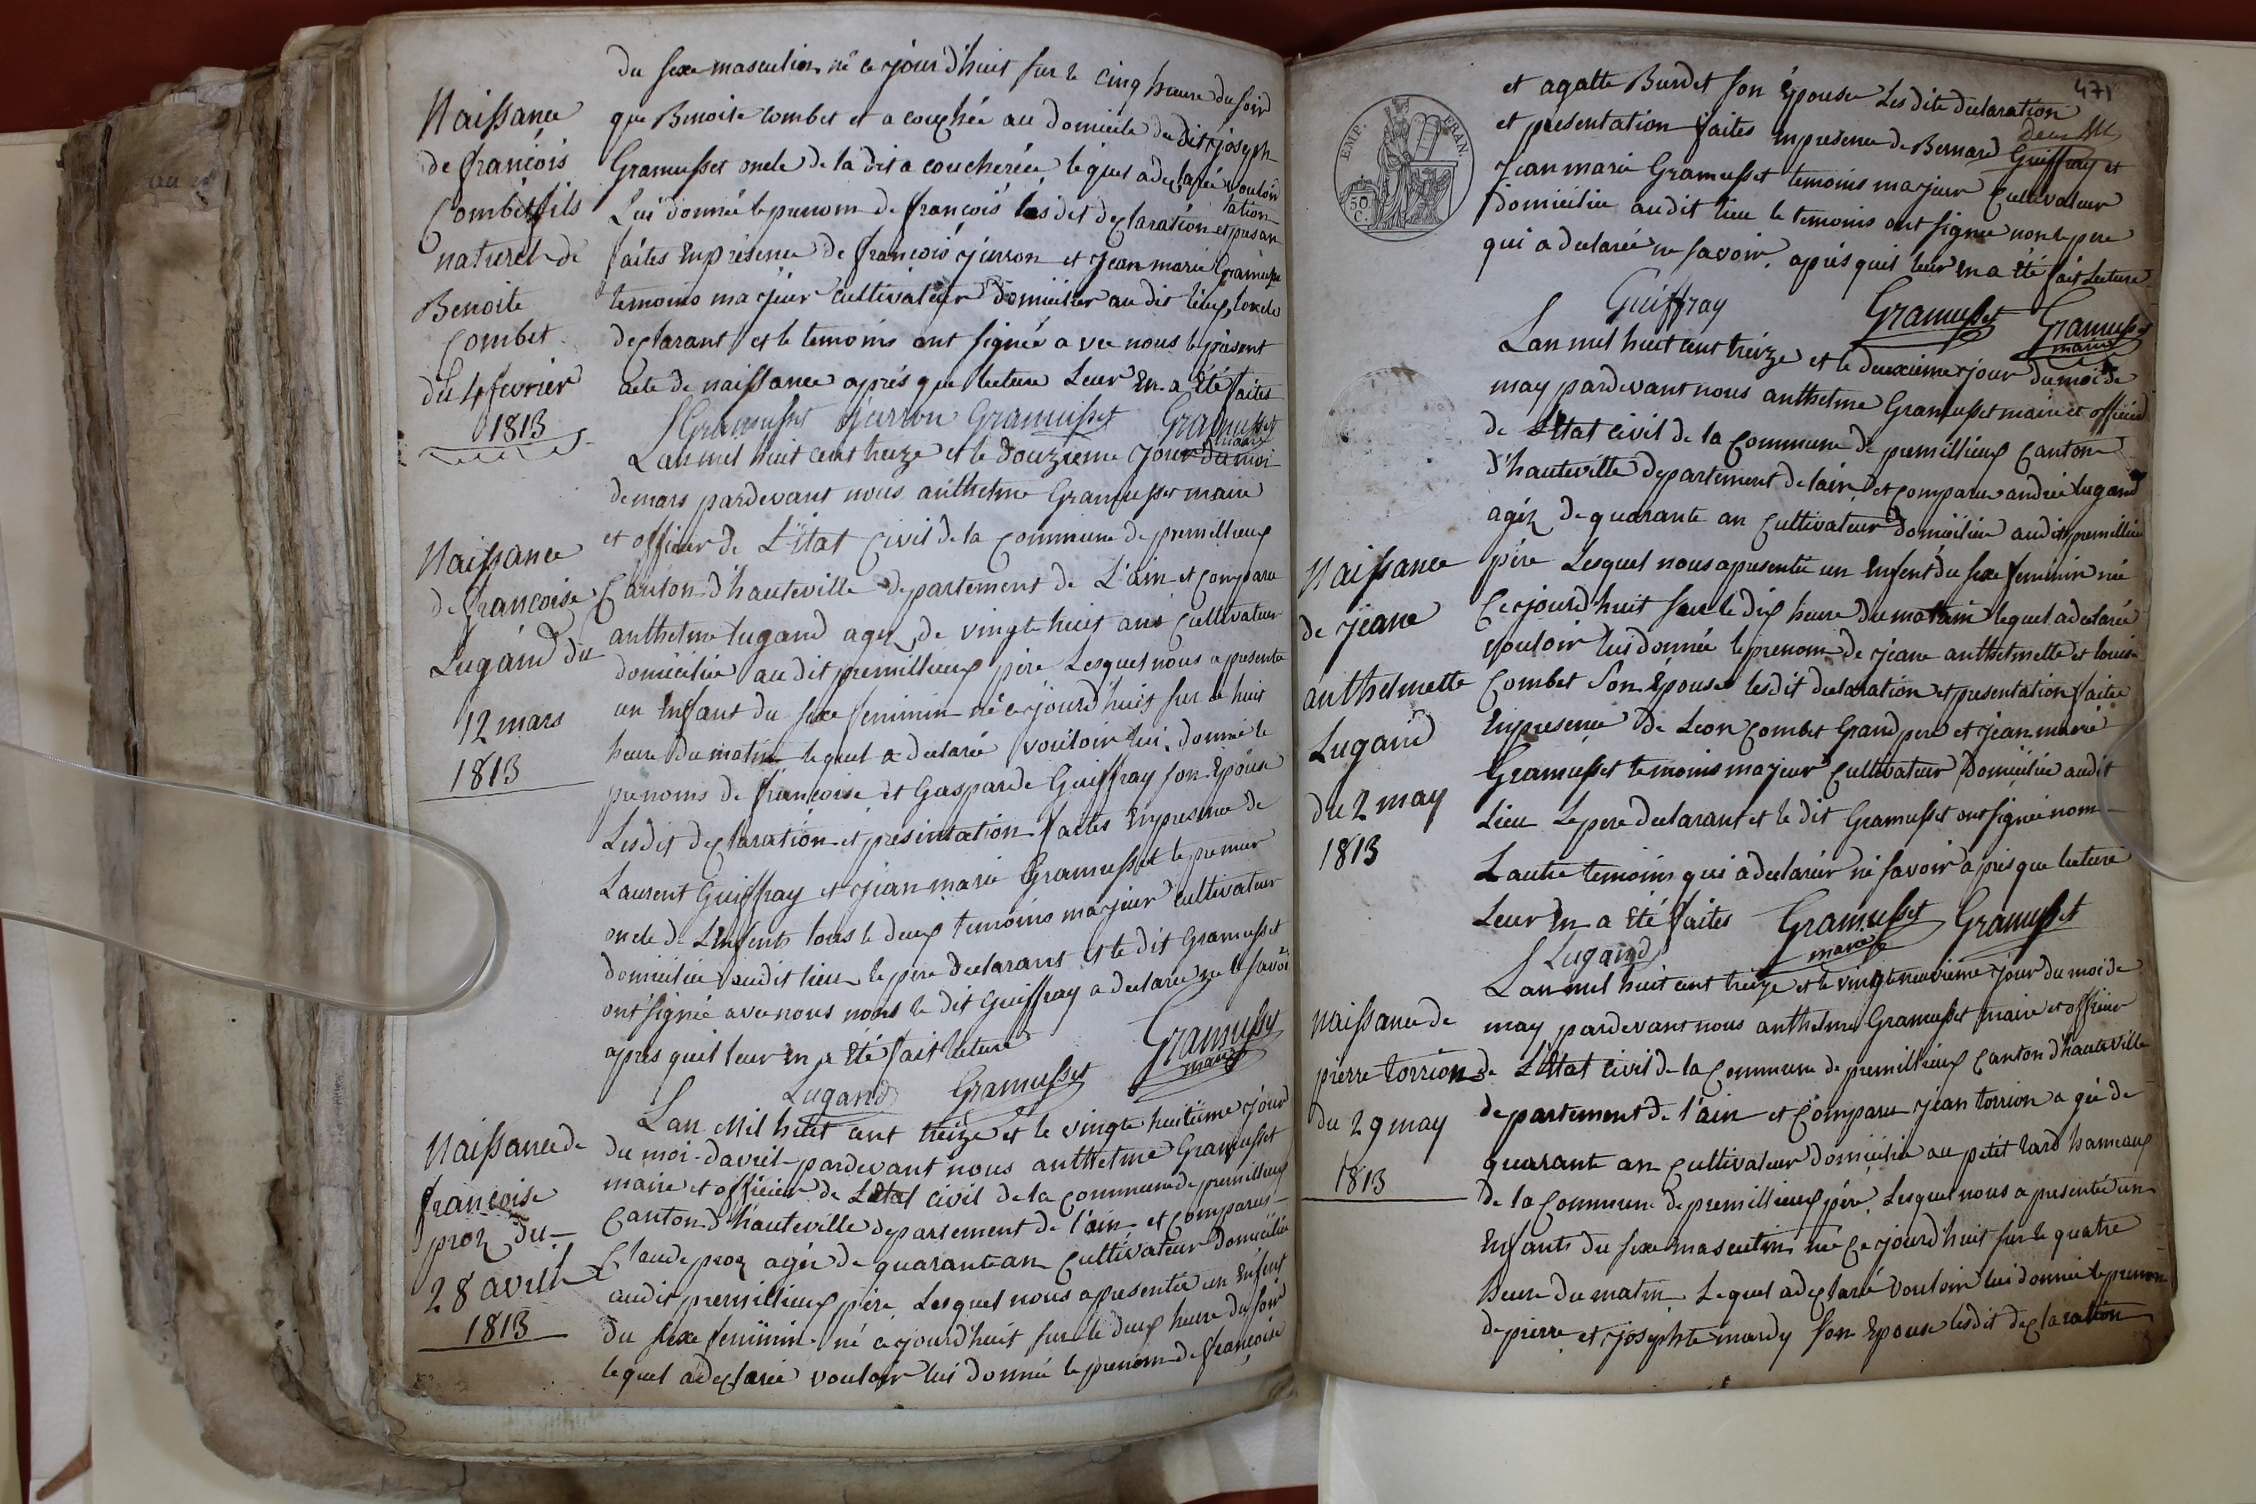 du sexe masculin né ce jourd'huit sur le cinq heure du soir
que Benoite Combet et a couchée au domicile du dit josèph
Gramusset oncle de la dit a coucherée lequel a déclarée vouloir
Lui donnée le prenom de françois les dit declaration et presan
tation
faites En présence de françois jerron et jean marie Gramusset
temoins majeur cultivateur Domicilier au dit lieux, loncle
declarant et le temoins ont signée avec nous le présent
acte de naissance aprés que lecture Leur En a Eté faites
Gramusset Gramusset Gramusset
maire
Naissance
de françois
Combet fils
naturel de
Benoite
Combet
du 4 fevrier
1813
Lan mil huit cent treize et le douzieme jour du moi
de mars pardevant nous anthelme Gramusset maire
et officier de L'état Civil de la Commune de premillieux
Canton d'hauteville departement de L'ain et Comparu
anthelme Lugand agez de vingt huit ans Cultivateur
domicilié au dit premillieux père Lesquel nous a presente
un Enfant du sexe feminin né ce jourd'huit sur le huit
heure du matin lequel a declarée vouloir lui donné le
prenoms de françoise et Gasparde Guiffray son Epouse
Lesdit declaration et présentation faites En presence de
Laurent Guiffray et jean marie Gramusset le premier
oncle de L'enfents tous le deux temoins majeur cultivateur
domicilie audit lieu le père declarant et le dit Gramusset
ont signée avec nous non le dit Guiffray a declarée ne le savoir
aprés quil leur En a Eté fait lecture
Lugand Gramusset Gramusset
maire
Naissance
de françoise
Lugand du
12 mars
1813
Lan Mil huit cent treize et le vingt huitième jour
du moi d'avril pardevant nous anthelme Gramusset
maire et officier de Létat civil de la Commune de premillieux
Canton d'hauteville departement de l'ain et Comparus
Claude proz agée de quarante an Cultivateur Domicilié
audit premillieux père Lesquel nous a presentée un Enfent
du sexe feminin né ce jourd'huit sur le deux heure du soir
lequel a declarée vouloir lui donné le prenom de françoise
Naissance de
françoise
proz du
28 avril
1813
471
et agatte Burdet son Epouse Les dite declaration
et presentation faites En presence de Bernard Guiffray et
jean marie Gramusset temoins majeur Cultivateur
domicilie audit lieu le temoins ont signée non le pere
qui a declarée ne savoir, aprés quil leur En a Eté fait Lecture
Guiffray Gramusset Gramusset
maire
Lan mil huit cent treize et le deuxieme jour du moi de
may pardevant nous anthelme Gramusset maire et officier
de L'Etat civil de la Commune de premillieux Canton
d'hauteville departement de l'ain et comparu andrée Lugand
agéz de quarante an Cultivateur Domicilie audit premillieu
père Lesquel nous a presentée un Enfent du sexe feminin née
Ce jourd'huit sur le dix heure du matin lequel a declarée
vouloir lui donnée le prenom de jéane anthelmette et louise
Combet Son Epouse lesdit declaration et presentation faitee
En presence De Leon Combet Grand pere et jean marié
Gramusset temoins majeur Cultivateur Domicilie audit
Lieu Le pere declarant et le dit Gramusset ont signée nom
Lautre temoins qui a declarér né savoir aprés que lecture
Leur En a Eté faites Gramusset Gramusset
maire
Lugand
Naissance
de jéane
anthelmette
Lugand
du 2 may
1813
Lan mil huit cent treize et le vingt neuvieme jour du moi de
may pardevant nous anthelme Gramusset maire et officier
de L'Etat civil de la Commune de premillieux Canton d'hauteville
departement de l'ain et Comparu jean torrion agée de
quarant an Cultivateur Domicilie au petit tard hameaux
de la Commune de premillieux péré Lesquel nous a presentée un
Enfants du sexe masculin née Ce jourd'huit sur le quatre
heure du matin Lequel a declarée vouloir lui donnée le prenom
de pierre et josephte mardy son Epouse lesdit declaration
naissance de
pierre torrion
du 29 may
1813
EMP. FRAN.
50 C.